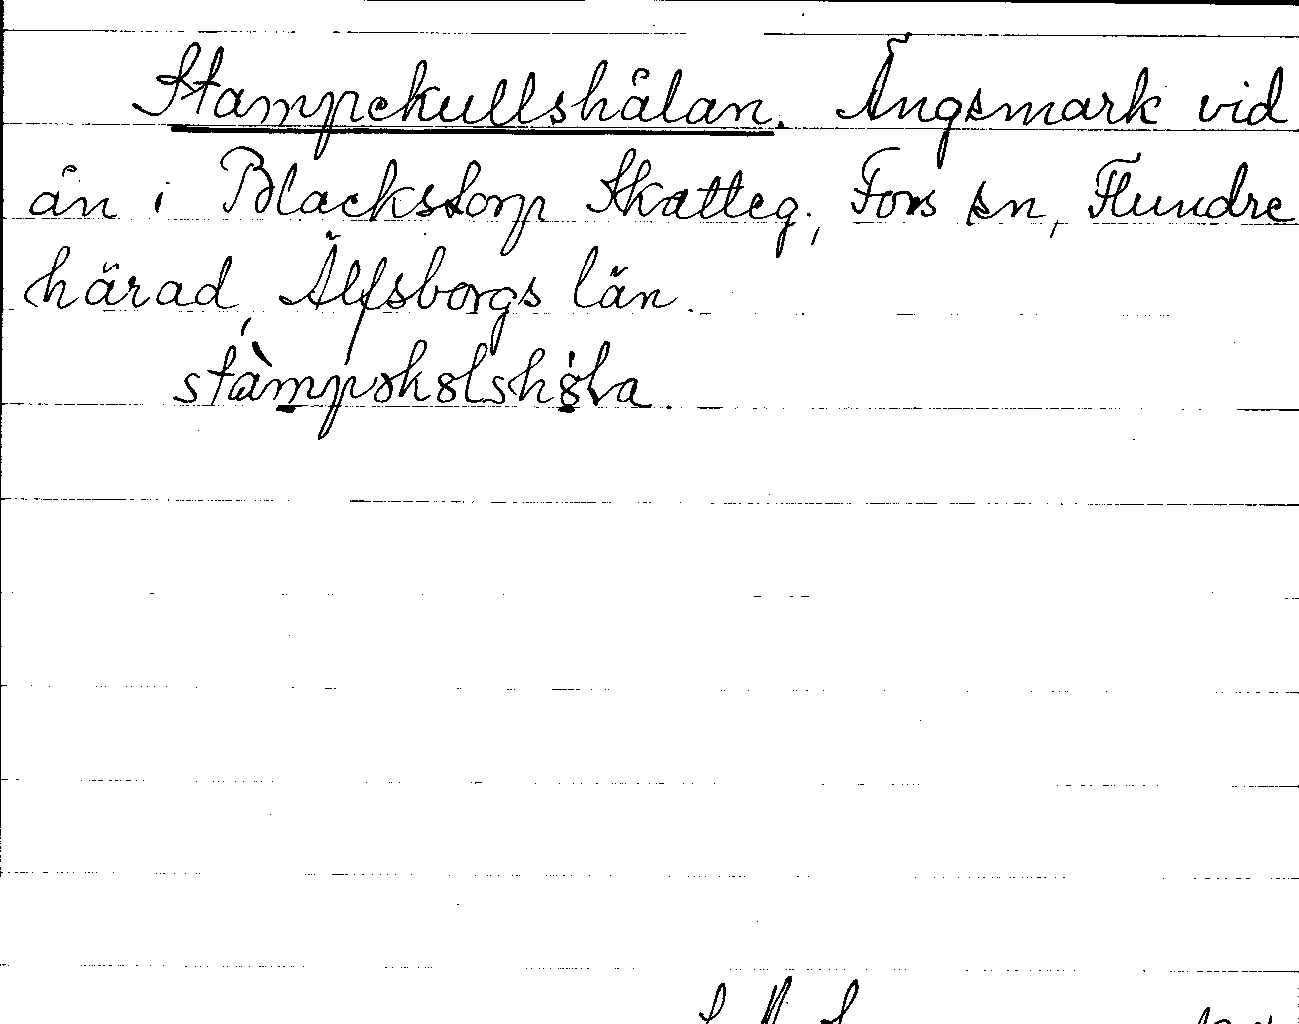 Stampekullshålan. Ängsmark vid
ån i Blackstorp Skatteg., Fors sn, Flundre
härad, Älfsborgs län.
stàmpəkəlshə̣́la.